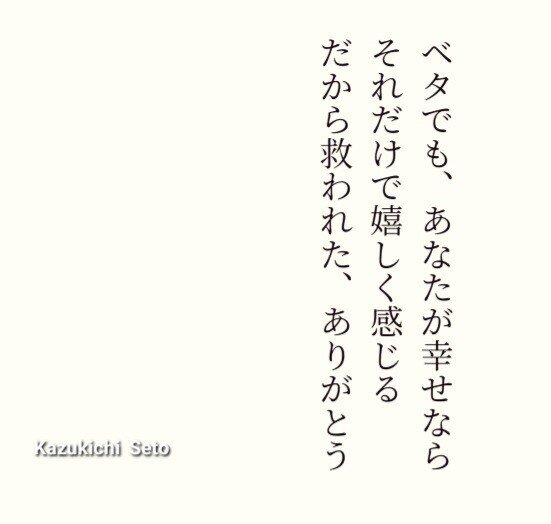 ベタでも、あなたが幸せなら
それだけで嬉しく感じる
だから救われた、ありがとう
Kazukichi Seto